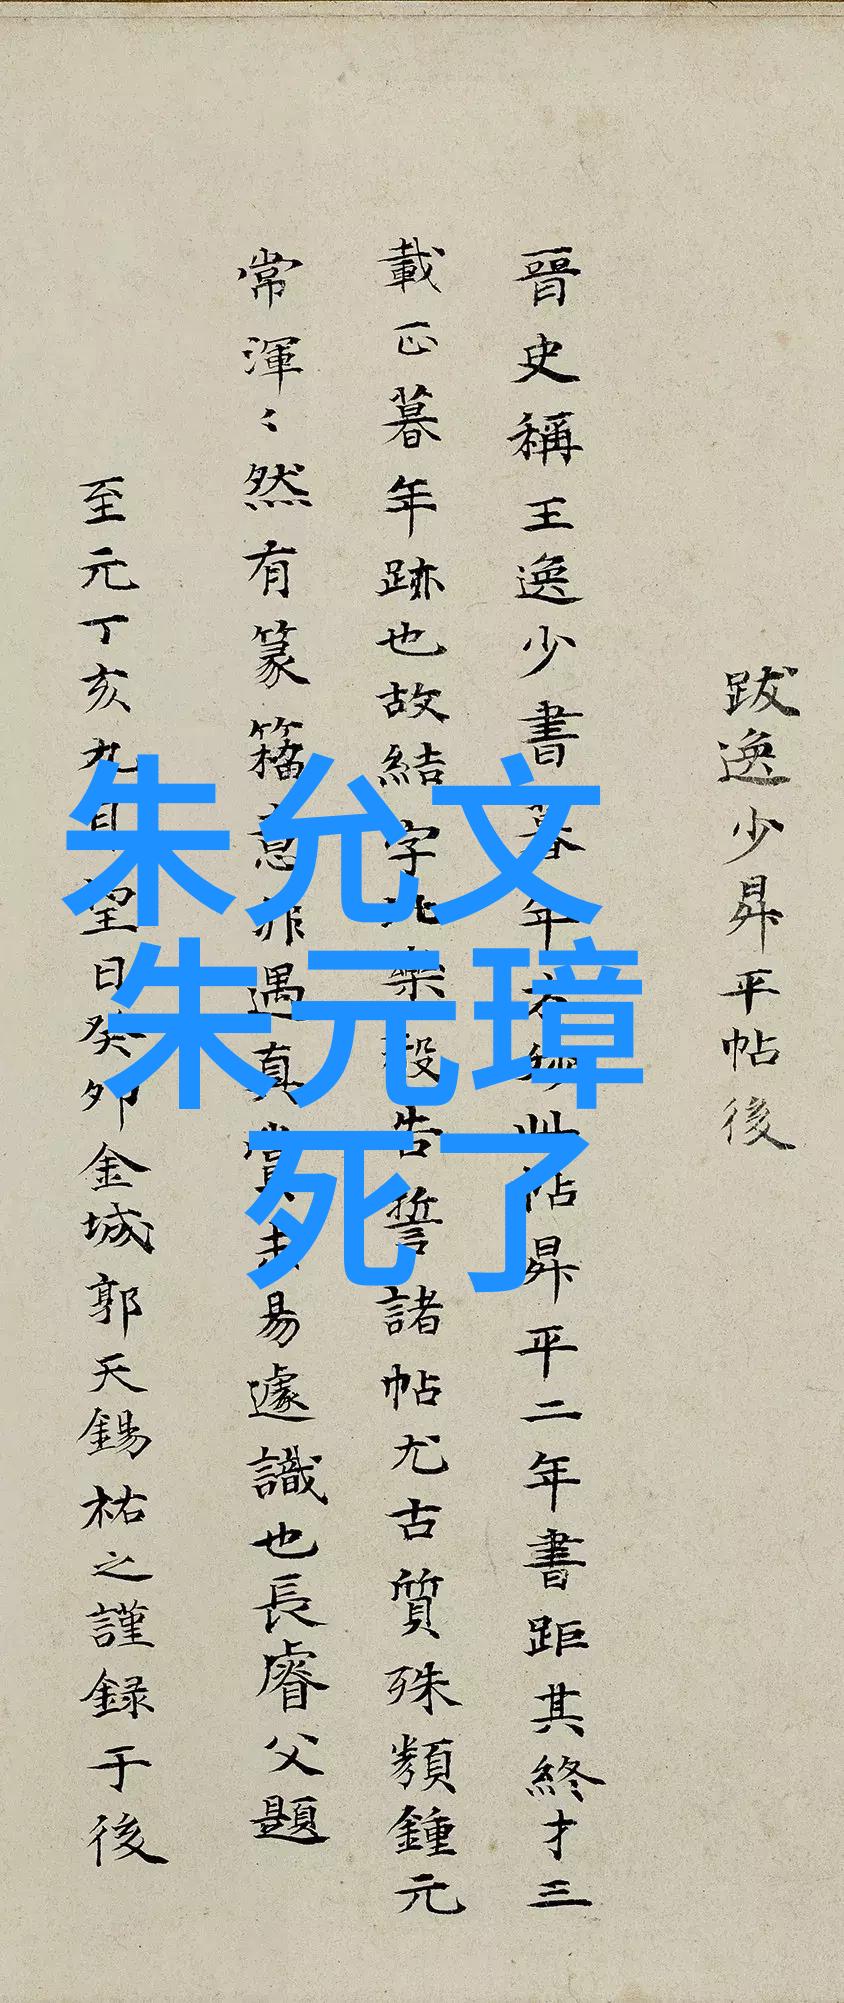 跋逸少昇平帖後
晉史稱王逸少書暮年方妙此帖昇平二年書距其終才三
載正暮年跡也故結字比樂毅告誓諸帖尤古質殊類鍾元
常渾〻然有篆籀意非遇真賞未易遽識也長睿父題
至元丁亥九月望日癸卯金城郭天錫祐之謹録于後
朱允文
朱元璋
死了